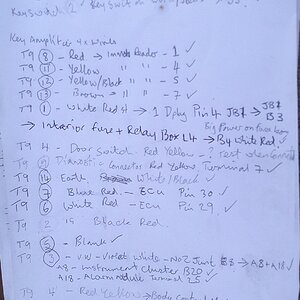 Key Amplifier 4 x Wires
T9 ⑧ - Red → Immob Reader - 1 ✓
T9 ⑪ - Yellow " " - 4 ✓
T9 ⑫ - Yellow/Black " " - 5 ✓
T9 ⑬ - Brown " " - 7 ✓
T9 ① - White Red → 1 Dply Pin 4 JB7 → JB7 B3
→ Interior fuse + Relay Box L4 → By White Red
T9 4 - Door Switch Red Yellow - Test when Connected
T9 Diagnostic Connector Red Yellow, Terminal 7 ✓
T9 ⑭ Earth White/Black ✓
T9 ⑦ Blue Red - ECU Pin 30 ✓
T9 ⑥ White Red - ECU Pin 29 ✓
T9 2 Black Red
T9 ⑤ - Blank ✓
T9 ③ - VW - Violet White - No 2 Junt → A8 + A18 ✓
A8 - Instrument Cluster B20 ✓
A18 - Alarm module Terminal 25
T9 4 - Red Yellow → Body